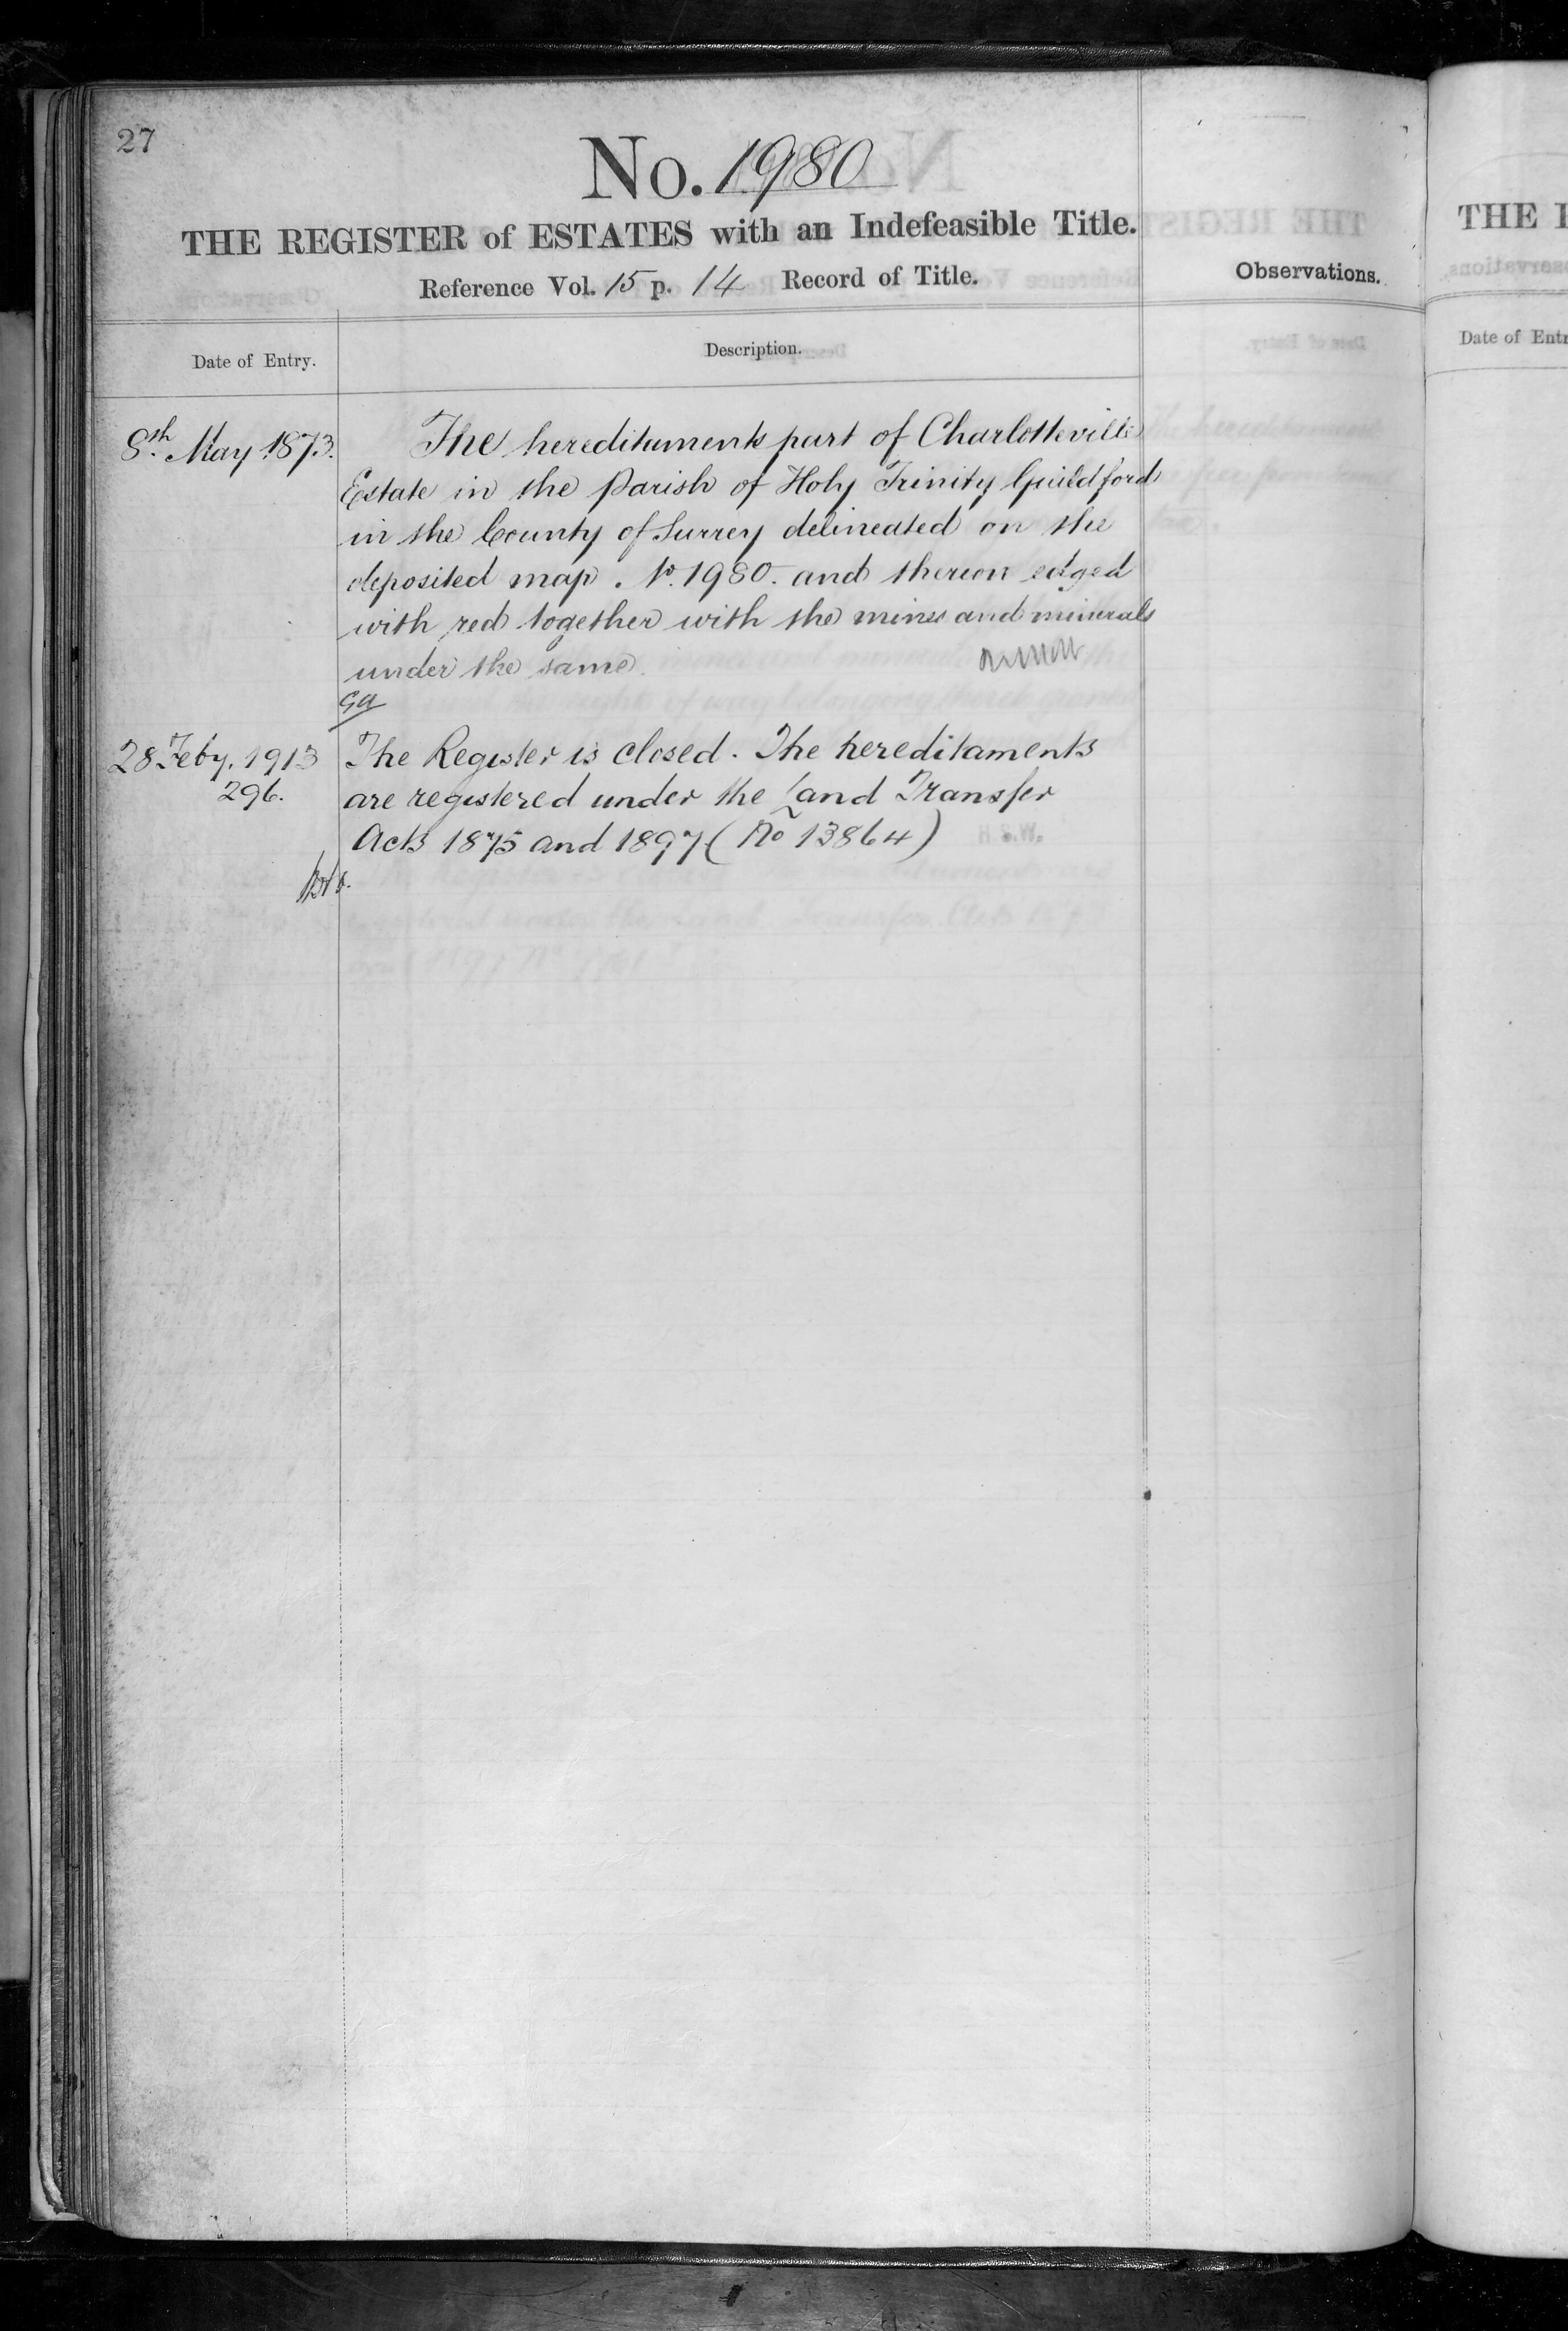 27
No. 1980
THE REGISTER of ESTATES with an Indefeasible Title.
Reference Vol. 15 p. 14 Record of Title.
Observations.
Date of Entry.
Description.
8th May 1873.
The hereditaments part of Charlotteville
Estate in the Parish of Holy Trinity Guildford
in the County of Surrey delineated on the
deposited map. No. 1980. and thereon edged
with red together with the mines and minerals
under the same.
28 Feby. 1913
296.
The Register is closed. The hereditaments
are registered under the Land Transfer
Acts 1875 and 1897 (No 13864)
THE
Date of Ent